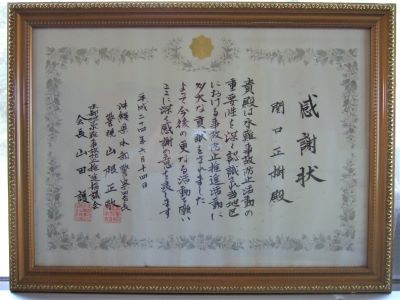 感謝状
関口正樹殿
貴殿は水難事故防止活動の
重要性を深く認識され当地区
における事故防止推進活動に
多大な貢献をされました
よって今後の更なる活動を願い
ここに深く感謝の意を表します
平成二十四年六月十四日
沖縄県本部警察署長
警視 山根正敬
会長 山田護